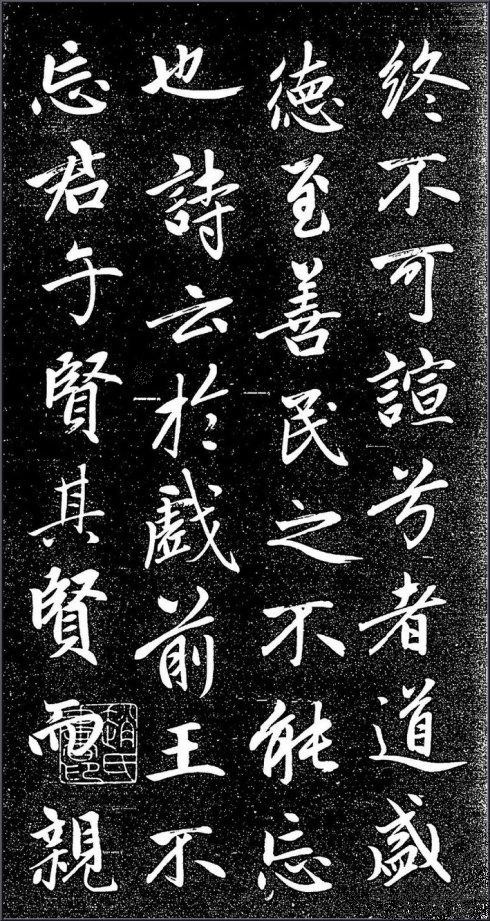 終不可諠兮者道盛
德至善民之不能忘
也詩云於戲前王不
忘君子賢其賢而親
趙氏